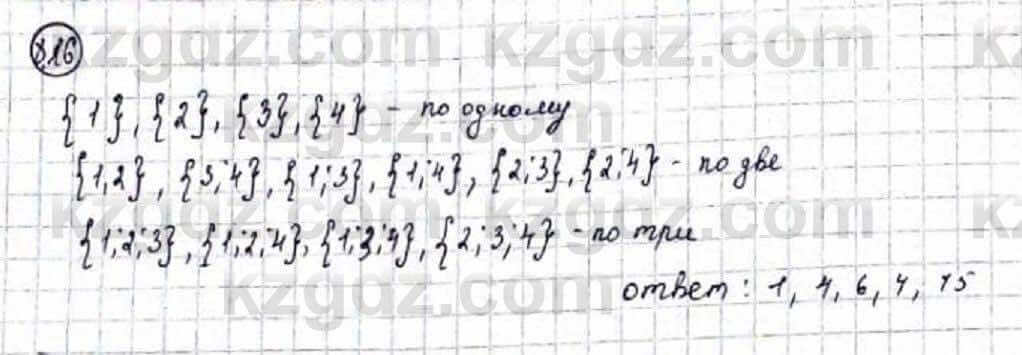 8.16
{1}, {2}, {3}, {4} - по одному
{1,2}, {3;4}, {1;3}, {1;4}, {2;3}, {2;4} - по две
{1;2;3}, {1;2;4}, {1;3;4}, {2;3;4} - по три
ответ: 1, 4, 6, 4, 15
kzgdz.com